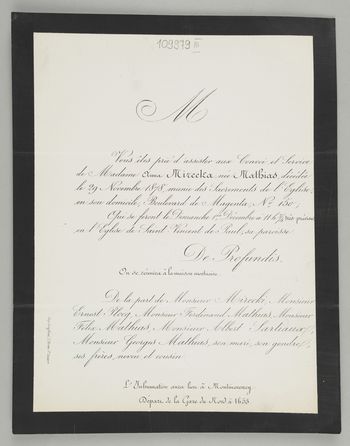 109379 III
M
Vous êtes prié d'assister aux Convoi et Service
de Madame Anna Mirecka née Mathias, décédée
le 29 Novembre 1878, munie des Sacrements de l'Eglise,
en son domicile, Boulevard de Magenta, No 150,
Qui se feront le Dimanche 1er Décembre à 11 h très précises
en l'Eglise de Saint Vincent de Paul, sa paroisse.
De Profundis.
On se réunira à la maison mortuaire.
De la part de Monsieur Mirecki, Monsieur
Ernest Monsieur Ferdinand Mathias, Monsieur
Félix Mathias, Monsieur Albert Sartiaux,
Monsieur Georges Mathias, son mari, son gendre,
ses frères, neveu et cousin.
L'Inhumation aura lieu à Montmorency.
Départ de la Gare du Nord à